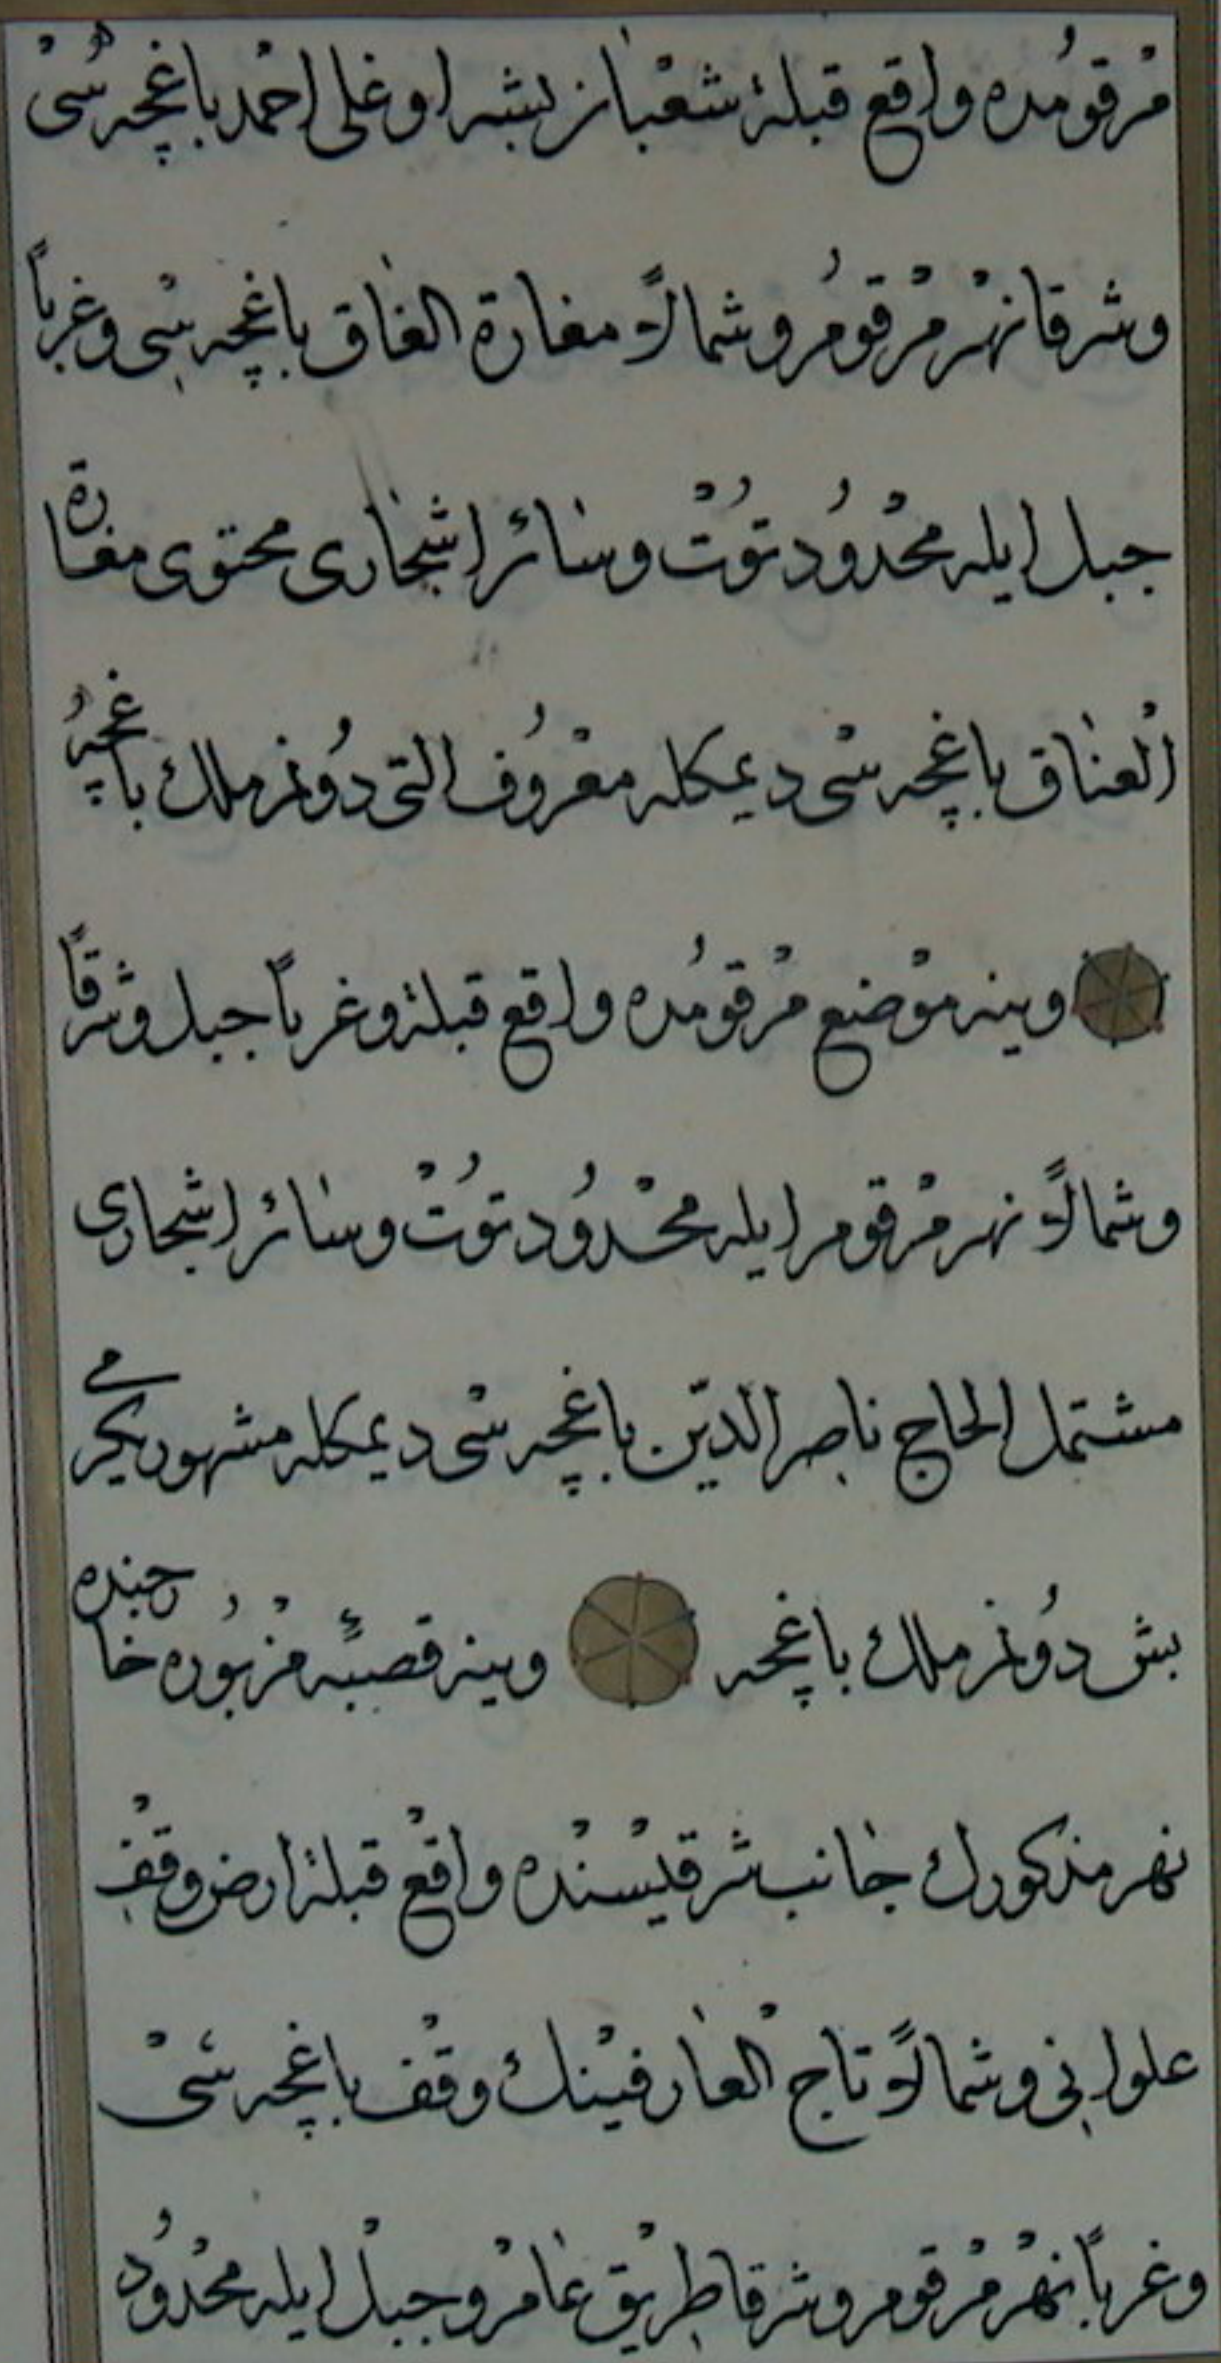 مرقومده واقع قبلةً شعبان بشه اوغلى احمد باغچه سى
وشرقا نهر مرقوم وشمالاً مغارة العناق باغچه سى وغرباً
جبل ايله محدود توت وسائر اشجارى محتوى مغارة
العناق باغچه سى ديمكله معروف التى دونم ملك باغچه
وينه موضع مرقومده واقع قبلةً وغرباً جبل وشرقاً
وشمالاً نهر مرقوم ايله محدود توت وسائر اشجارى
مشتمل الحاج ناصر الدين باغچه سى ديمكله مشهور يكرمى
بش دونم ملك باغچه وينه قصبهٔ مزبوره خارجنده
نهر مذكورك جانب شرقيسنده واقع قبلةً ارض وقف
علوانى وشمالاً تاج العارفينك وقف باغچه سى
وغرباً نهر مرقوم وشرقا طريق عام وجبل ايله محدود